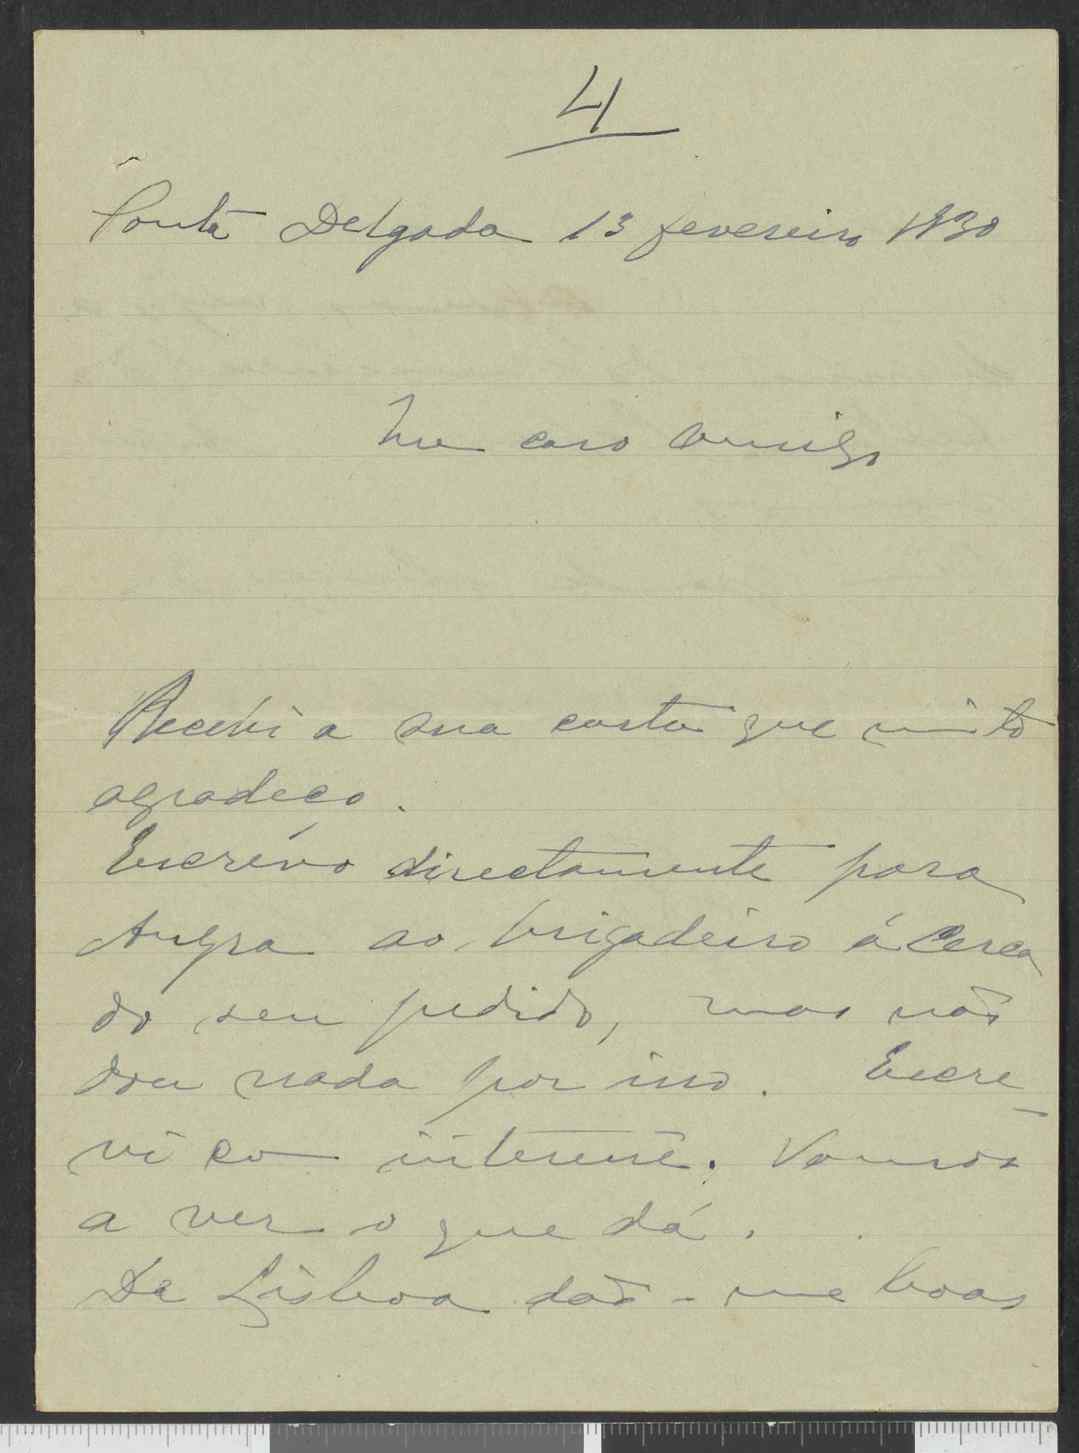 4
Ponta Delgada 13 fevereiro 1930
Meu caro amigo
Recebi a sua carta que muito
agradeço.
Escrevo directamente para
Angra ao brigadeiro ácerca
do seu pedido, mas não
dou nada por isso. Escre-
vi com interesse. Vamos
a ver o que dá.
De Lisboa dão-me boas